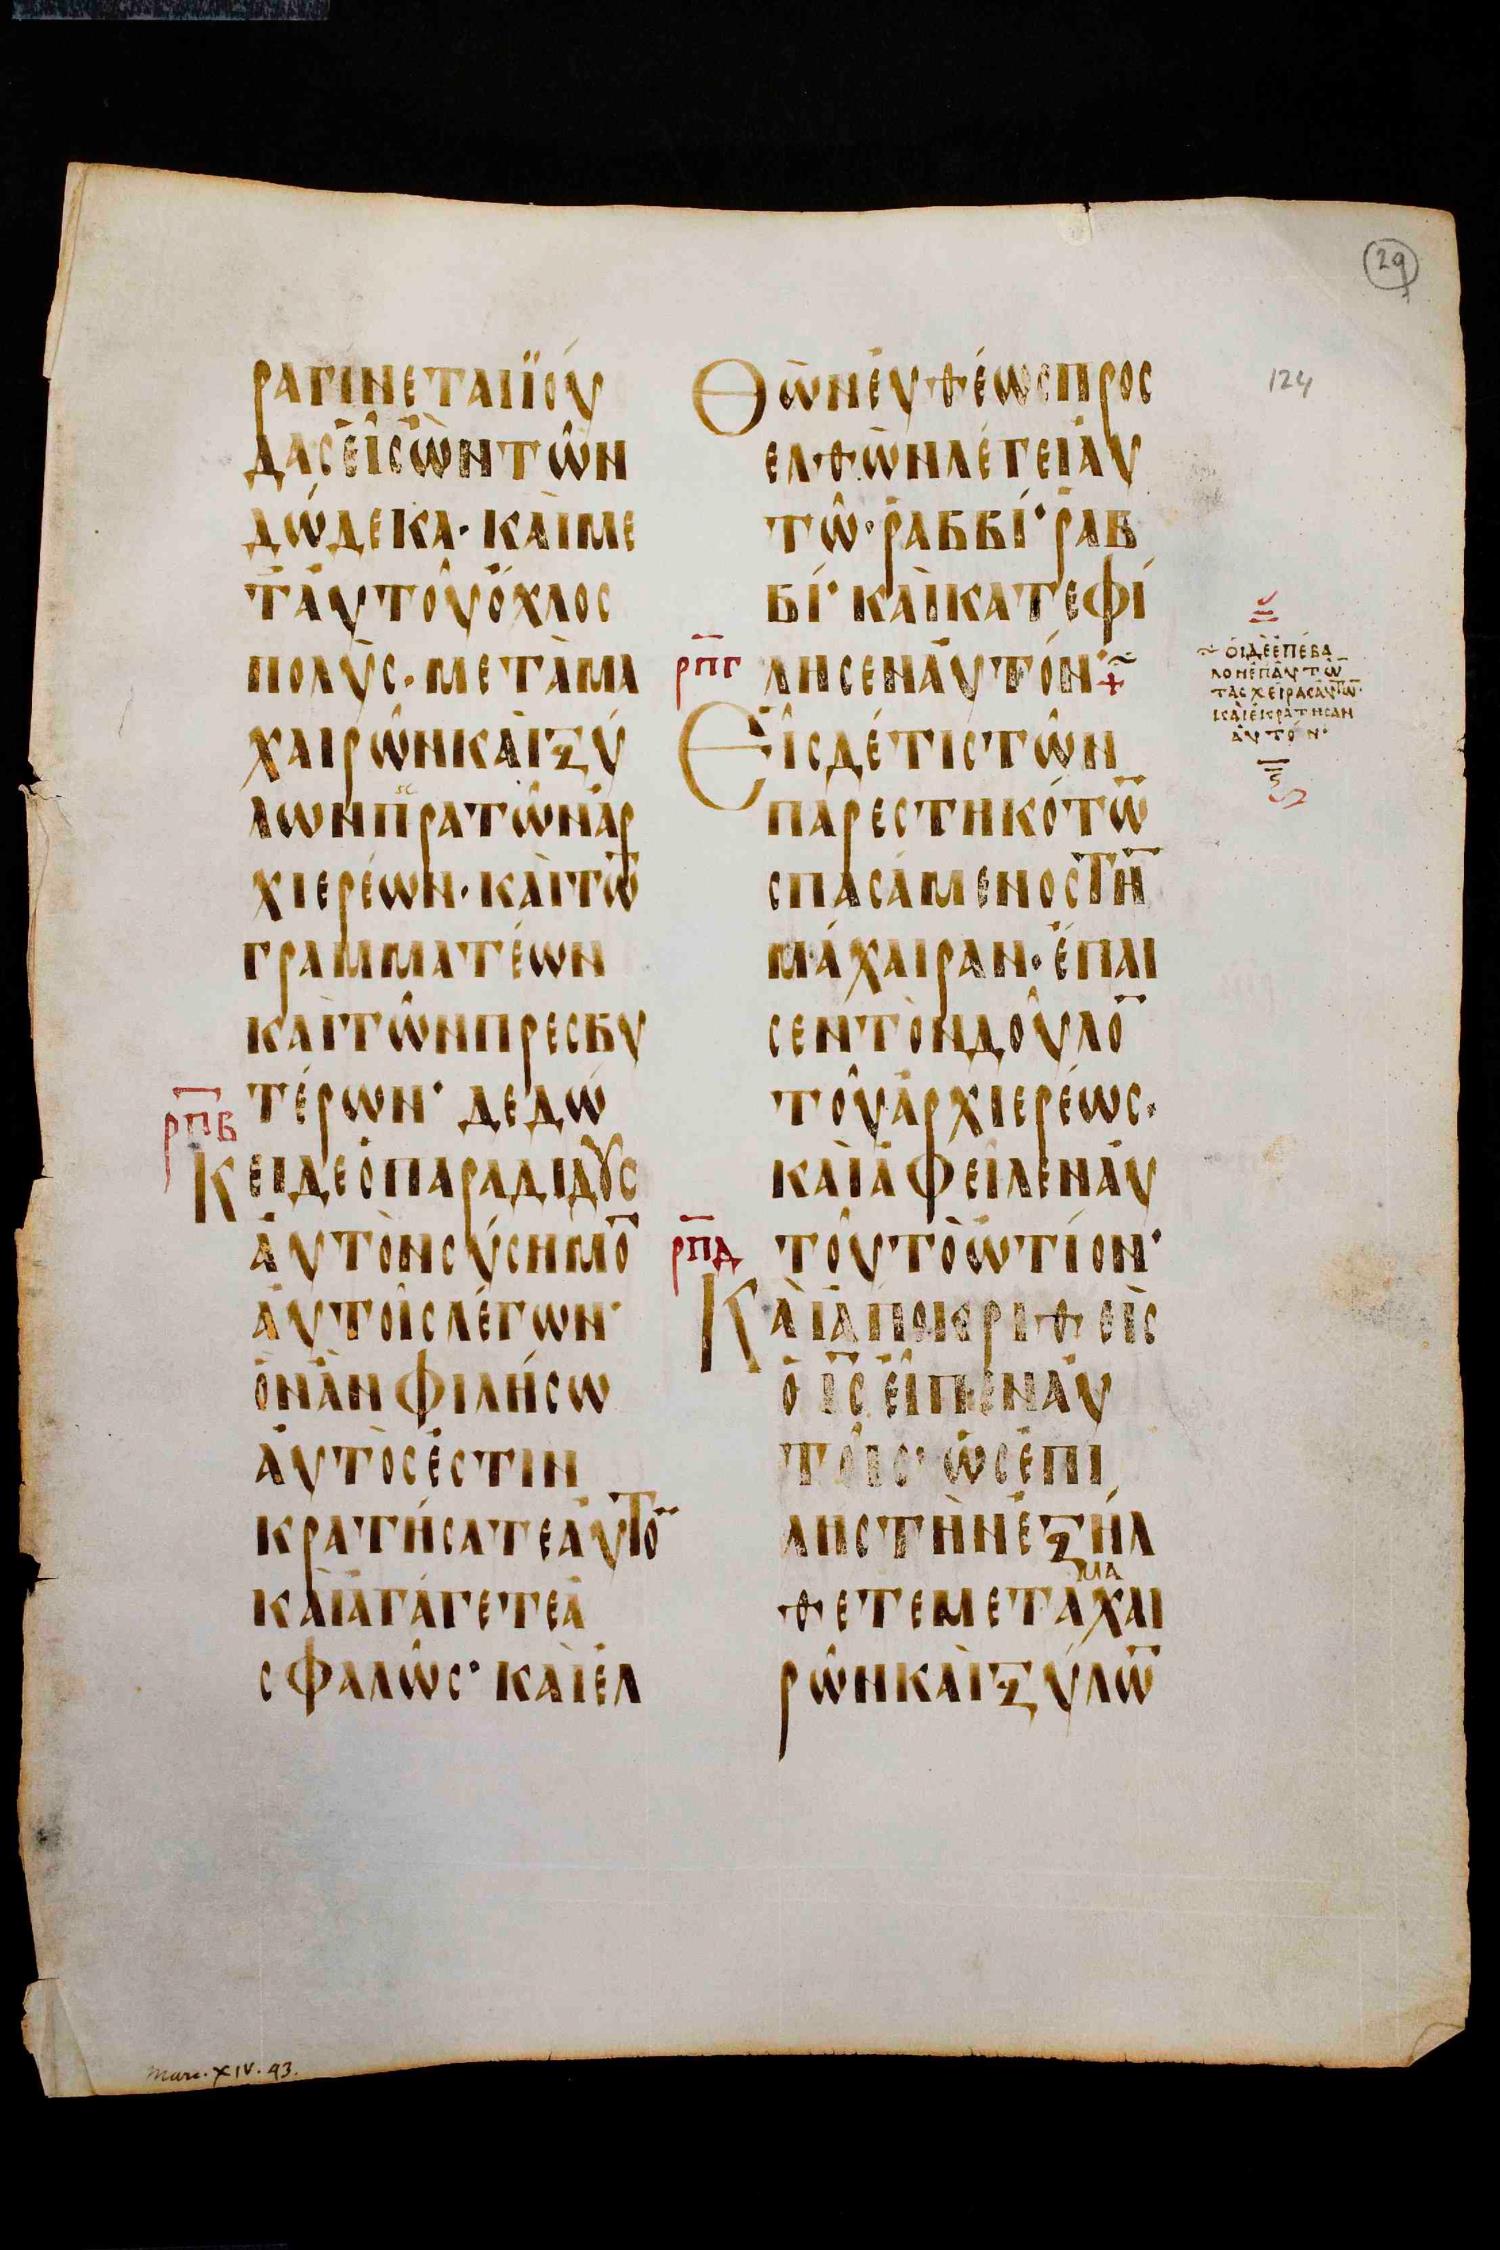 29
124
ραγίνεταιϊού
δασεἷσὢντῶν
δώδεκα· καὶμε
τ᾽ἀυτοῦὄχλος
πολὺς· μετὰμα
χαιρῶνκαὶξύ
λωνπρατῶνἀρ
χιερέων· καὶτω̅
γραμματέων
καὶτῶνπρεσβυ
τέρων· δεδώ
ρπβ
Κειδεὁπαραδιδȣς
ἀυτὸνσύσημο̅
ἀυτοῖςλέγων·
ὃνἂνφιλήσω
ἀυτὸςἐστιν
κρατήσατεἀυτο̅
καὶἀγάγετεἀ
σφαλῶς· καὶἐλ
Θὼνἐυθέωςπροσ
ελθὼνλέγειἀυ
τῶ· ῥαββί· ῥαβ
βί· καὶκατεφί
ρπγ
λησενἀυτόν·
Εἷςδέτιςτῶν
παρεστηκότω̅
σπασάμενοςτὴ̅
μάχαιραν· ἔπαι
σεντὸνδοῦλο̅
τοῦἀρχιερέως·
καὶἀφεῖλενἀυ
τοῦτὸὠτίον·
ρπδ
Καὶἀποκριθεὶς
ὁι̅ς̅εἶπενἀυ
τοῖς· ὡςἐπὶ
λῃστὴνἐξήλ
μα
θετεμεταχαι
ρῶνκαὶξύλω̅
ὁιδὲἐπέβα
λονἐπἀυτω̅
τὰςχεῖραςἀυτῶν·
καὶἐκράτησαν
ἀυτόν·
Marc. XIV. 43.